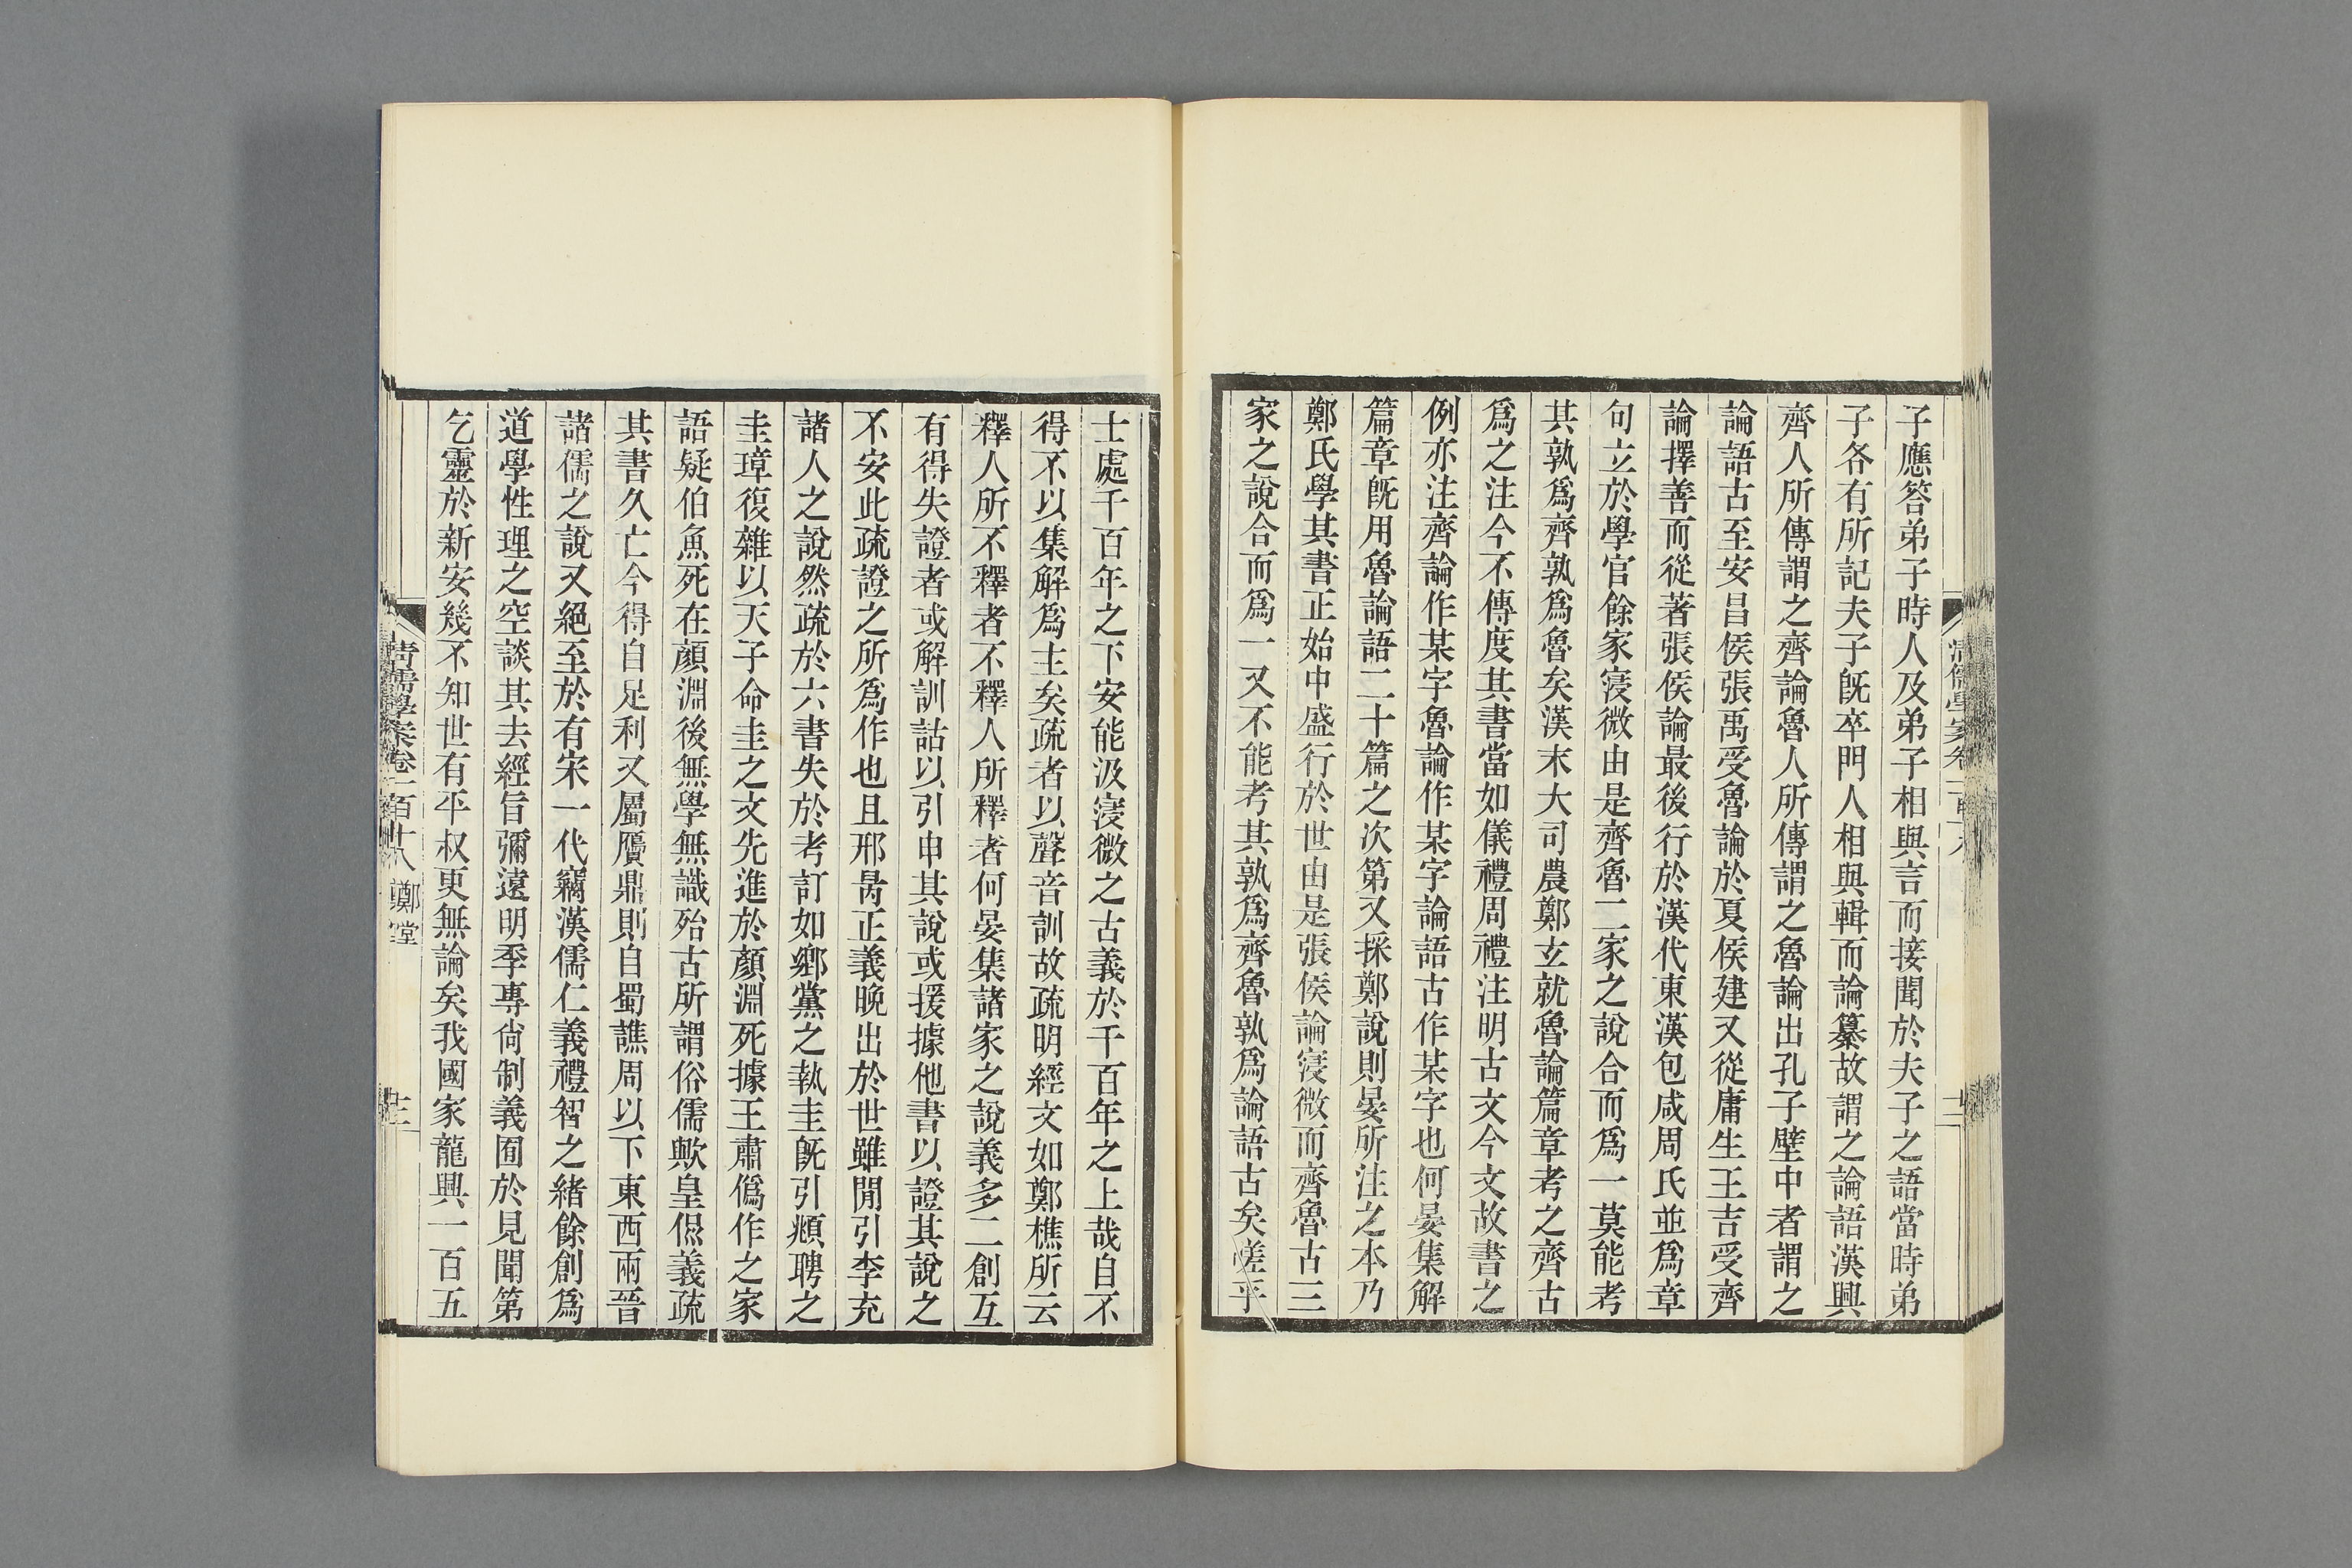 子應答弟子時人及弟子相與言而接聞於夫子之語當時弟
子各有所記夫子旣卒門人相與輯而論纂故謂之論語漢興
齊人所傳謂之齊論魯人所傳謂之魯論出孔子壁中者謂之
論語古至安昌侯張禹受魯論於夏侯建又從庸生王吉受齊
論擇善而從著張侯論最後行於漢代東漢包咸周氏並爲章
句立於學官餘家寖微由是齊魯二家之說合而爲一莫能考
其孰爲齊孰爲魯矣漢末大司農鄭玄就魯論篇章考之齊古
爲之注今不傳度其書當如儀禮周禮注明古文今文故書之
例亦注齊論作某字魯論作某字論語古作某字也何晏集解
篇章旣用魯論語二十篇之次第又採鄭說則晏所注之本乃
鄭氏學其書正始中盛行於世由是張侯論寖微而齊魯古三
家之說合而爲一又不能考其孰爲齊魯孰爲論語古矣嗟乎
士處千百年之下安能汲寖微之古義於千百年之上哉自不
得不以集解爲主矣疏者以聲音訓故疏明經文如鄭樵所云
釋人所不釋者不釋人所釋者何晏集諸家之說義多二創互
有得失證者或解訓詁以引申其說或援據他書以證其說之
不安此疏證之所爲作也且邢昺正義晚出於世雖閒引李充
諸人之說然疏於六書失於考訂如鄉黨之執圭旣引頫聘之
圭璋復雜以天子命圭之文先進於顏淵死據王肅僞作之家
語疑伯魚死在顏淵後無學無識殆古所謂俗儒歟皇侃義疏
其書久亡今得自足利又屬贋鼎則自蜀譙周以下東西兩晉
諸儒之說又絕至於有宋一代竊漢儒仁義禮智之緒餘創爲
道學性理之空談其去經旨彌遠明季專尙制義囿於見聞第
乞靈於新安幾不知世有平叔更無論矣我國家龍興一百五
清儒學案卷一百十八 鄭堂